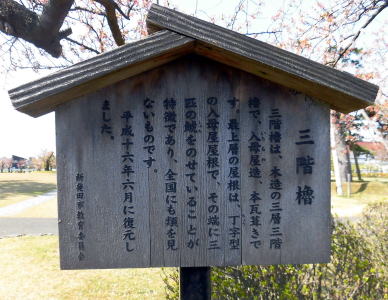 三階櫓
三階櫓は、木造の三層三階
櫓で、入母屋造、本瓦葺きで
す。最上層の屋根は、丁字型
の入母屋屋根で、その端に三
匹の鯱をのせていることが
特徴であり、全国にも類を見
ないものです。
平成十六年六月に復元し
ました。
新発田市教育委員会